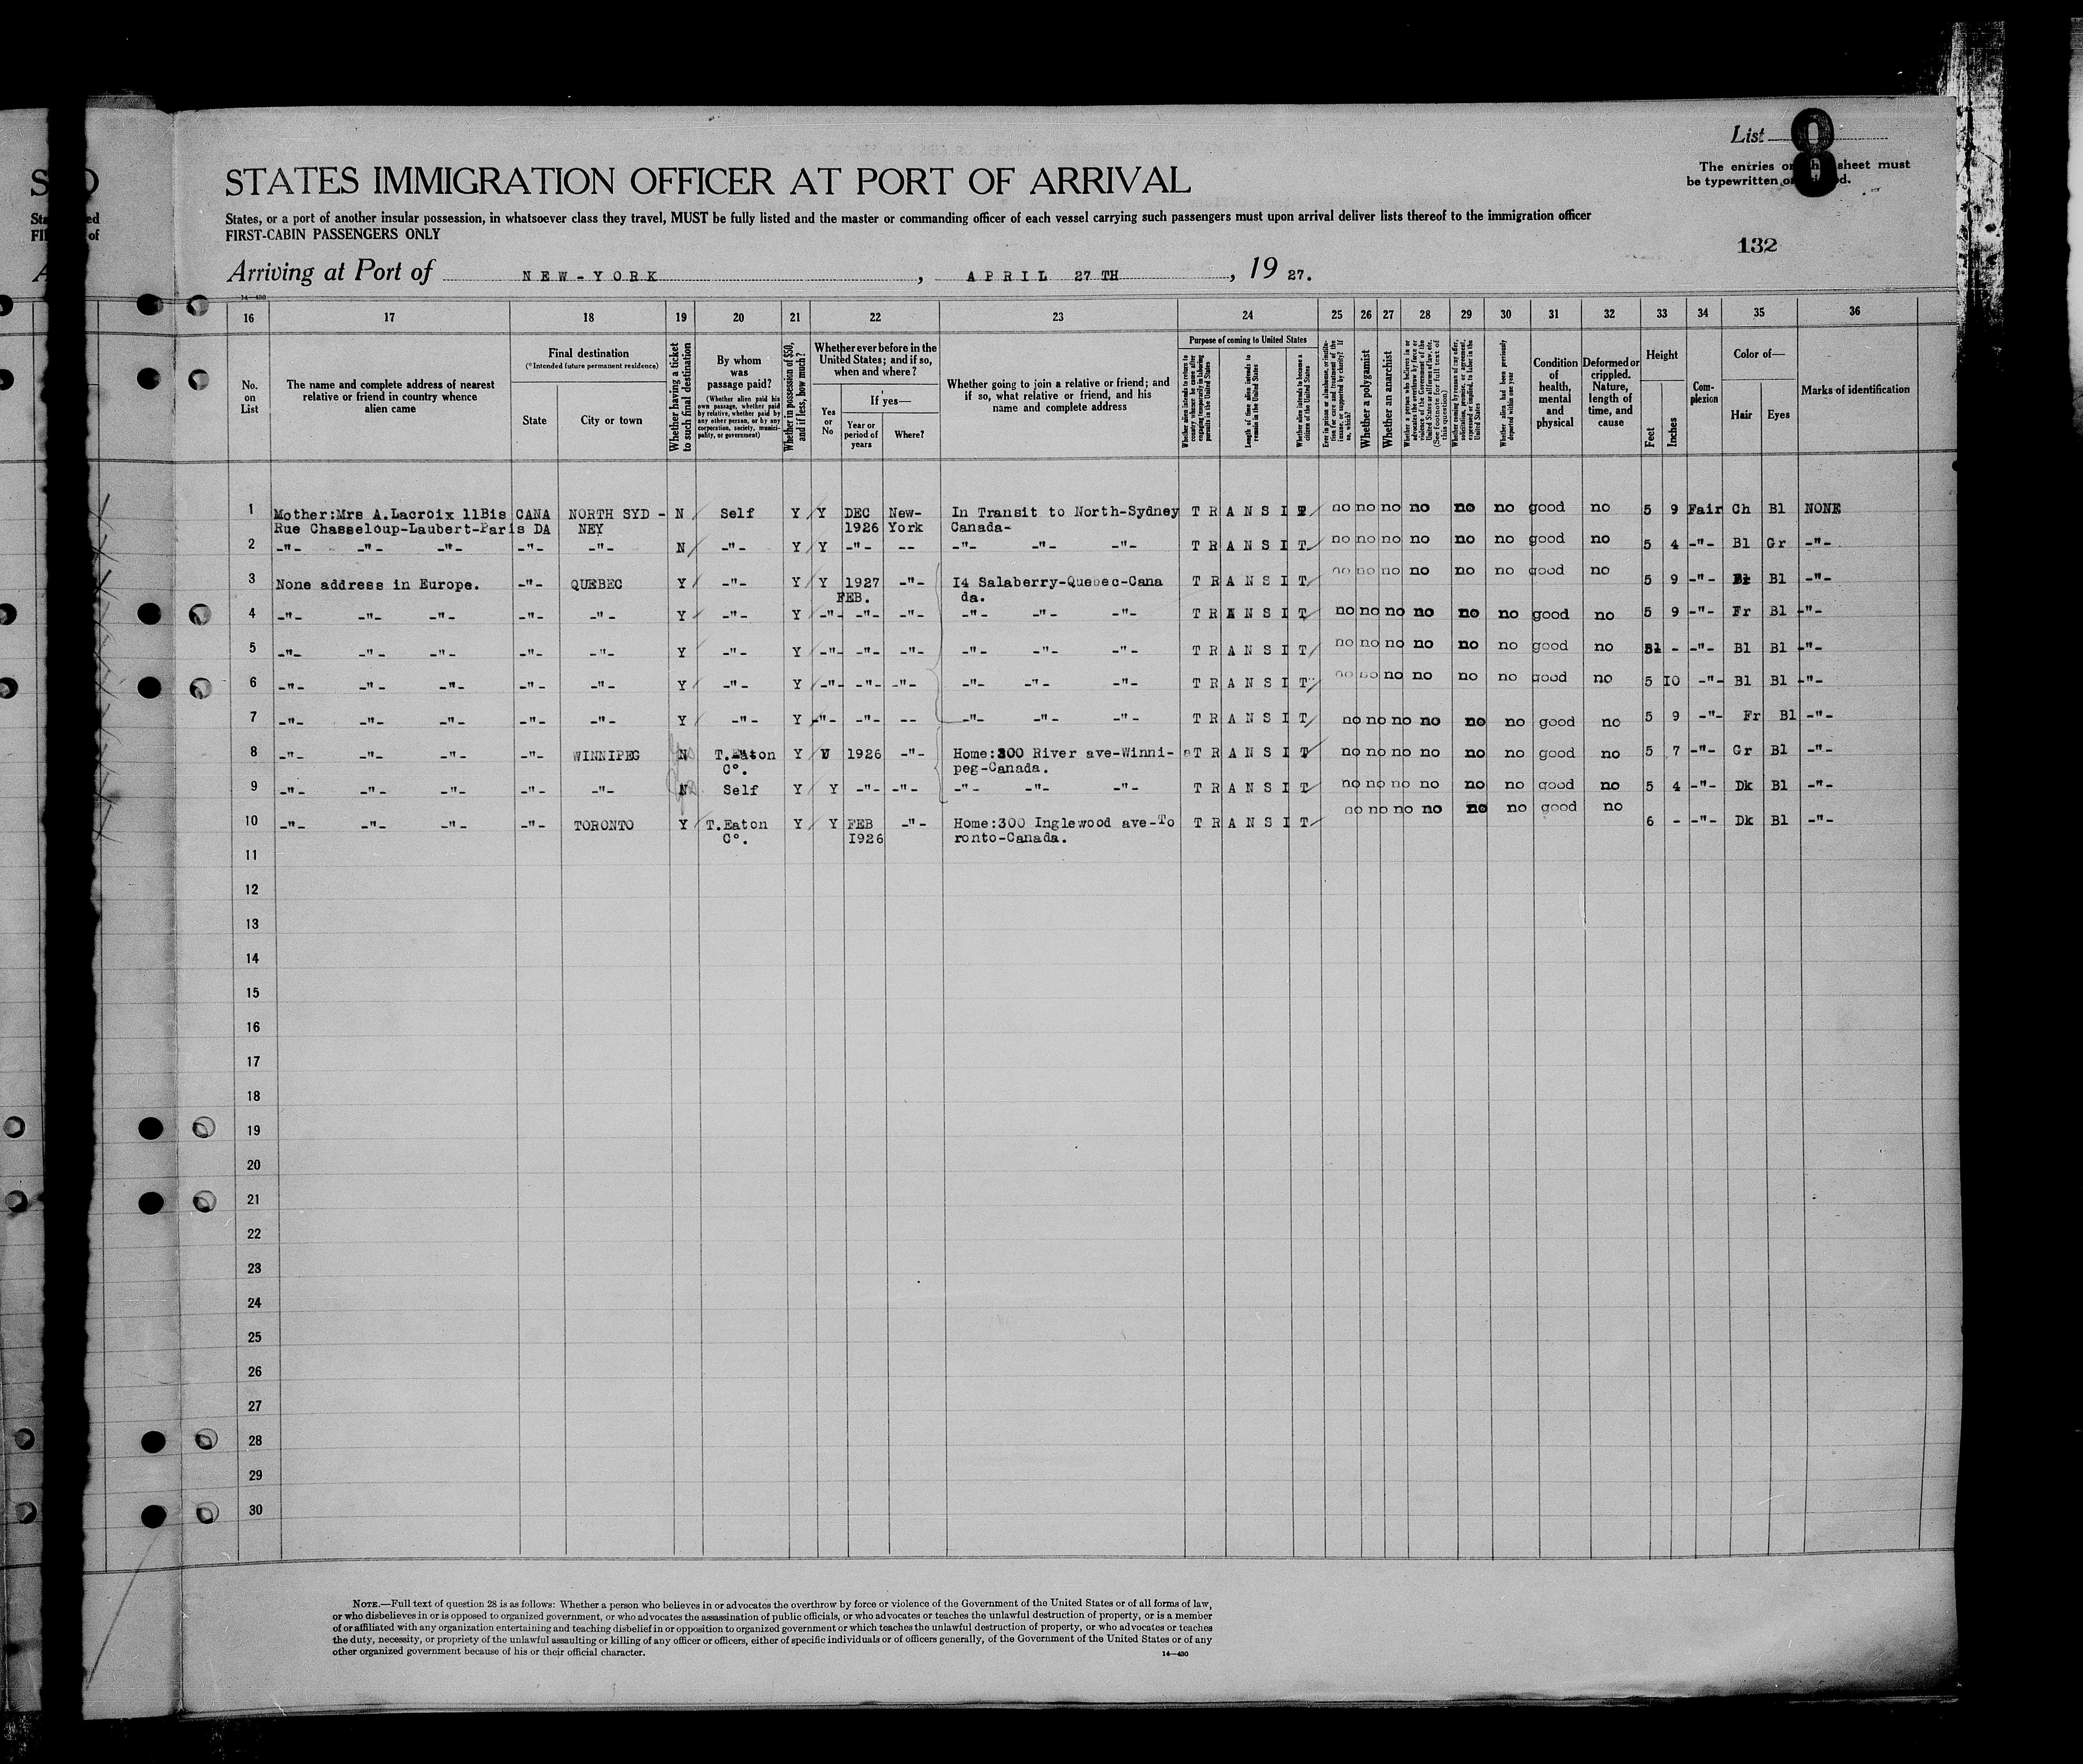 List 8
The entries on this sheet must
be typewritten or printed.
STATES IMMIGRATION OFFICER AT PORT OF ARRIVAL
States, or a port of another insular possession, in whatsoever class they travel, MUST be fully listed and the master or commanding officer of each vessel carrying such passengers must upon arrival deliver lists thereof to the immigration officer
FIRST-CABIN PASSENGERS ONLY
132
Arriving at Port of NEW-YORK, APRIL 27 TH, 19 27.
14—430
16 17 18 19 20 21 22 23 24 25 26 27 28 29 30 31 32 33 34 35 36
No. on List
The name and complete address of nearest relative or friend in country whence alien came
Final destination
(*Intended future permanent residence)
State
City or town
Whether having a ticket to such final destination
By whom was passage paid?
(Whether alien paid his own passage, whether paid by relative, whether paid by any other person, or by any corporation, society, municipality, or government)
Whether in possession of $50, and if less, how much?
Whether ever before in the United States; and if so, when and where?
Yes or No
If yes—
Year or period of years
Where?
Whether going to join a relative or friend; and if so, what relative or friend, and his name and complete address
Purpose of coming to United States
Whether alien intends to return to country whence he came after engaging temporarily in laboring pursuits in the United States
Length of time alien intends to remain in the United States
Whether alien intends to become a citizen of the United States
Whether a polygamist
Whether an anarchist
Whether alien had been previously deported within one year
Condition of health, mental and physical
Deformed or crippled. Nature, length of time, and cause
Height
Feet
Inches
Complexion
Color of—
Hair
Eyes
Marks of identification
1 Mother:Mrs A.Lacroix 11Bis CANA NORTH SYD - N Self Y Y DEC New- In Transit to North-Sydney TRANSIT no no no no no no good no 5 9 Fair Ch Bl NONE
Rue Chasseloup-Laubert-Paris DA NEY 1926 York Canada-
2 -"- -"- -"- -"- -"- N -"- Y Y -"- -- -"- -"- -"- TRANSIT no no no no no no good no 5 4 -"- Bl Gr -"-
3 None address in Europe. -"- QUEBEC Y -"- Y Y 1927 -"- I4 Salaberry-Quebec-Cana TRANSIT no no no no no no good no 5 9 -"- Bl -"-
FEB. da.
4 -"- -"- -"- -"- -"- Y -"- Y -"- -"- -"- -"- -"- -"- TRANSIT no no no no no no good no 5 9 -"- Fr Bl -"-
5 -"- -"- -"- -"- -"- Y -"- Y -"- -"- -"- -"- -"- -"- TRANSIT no no no no no no good no - -"- Bl Bl -"-
6 -"- -"- -"- -"- -"- Y -"- Y -"- -"- -"- -"- -"- -"- TRANSIT no no no no no no good no 5 I0 -"- Bl Bl -"-
7 -"- -"- -"- -"- -"- Y -"- Y -"- -"- -- -"- -"- -"- TRANSIT no no no no no no good no 5 9 -"- Fr Bl -"-
8 -"- -"- -"- -"- WINNIPEG N T.Eaton Y 1926 -"- Home:300 River ave-Winni- TRANSIT no no no no no no good no 5 7 -"- Gr Bl -"-
C°. peg-Canada.
9 -"- -"- -"- -"- -"- N Self Y Y -"- -"- -"- -"- -"- TRANSIT no no no no no no good no 5 4 -"- Dk Bl -"-
10 -"- -"- -"- -"- TORONTO Y T.Eaton Y Y FEB -"- Home:300 Inglewood ave-To TRANSIT no no no no no no good no 6 - -"- Dk Bl -"-
C°. I926 ronto-Canada.
11
12
13
14
15
16
17
18
19
20
21
22
23
24
25
26
27
28
29
30
NOTE.—Full text of question 28 is as follows: Whether a person who believes in or advocates the overthrow by force or violence of the Government of the United States or of all forms of law,
or who disbelieves in or is opposed to organized government, or who advocates the assassination of public officials, or who advocates or teaches the unlawful destruction of property, or is a member
of or affiliated with any organization entertaining and teaching disbelief in or opposition to organized government or which teaches the unlawful destruction of property, or who advocates or teaches
the duty, necessity, or propriety of the unlawful assaulting or killing of any officer or officers, either of specific individuals or of officers generally, of the Government of the United States or of any
other organized government because of his or their official character.
14—430